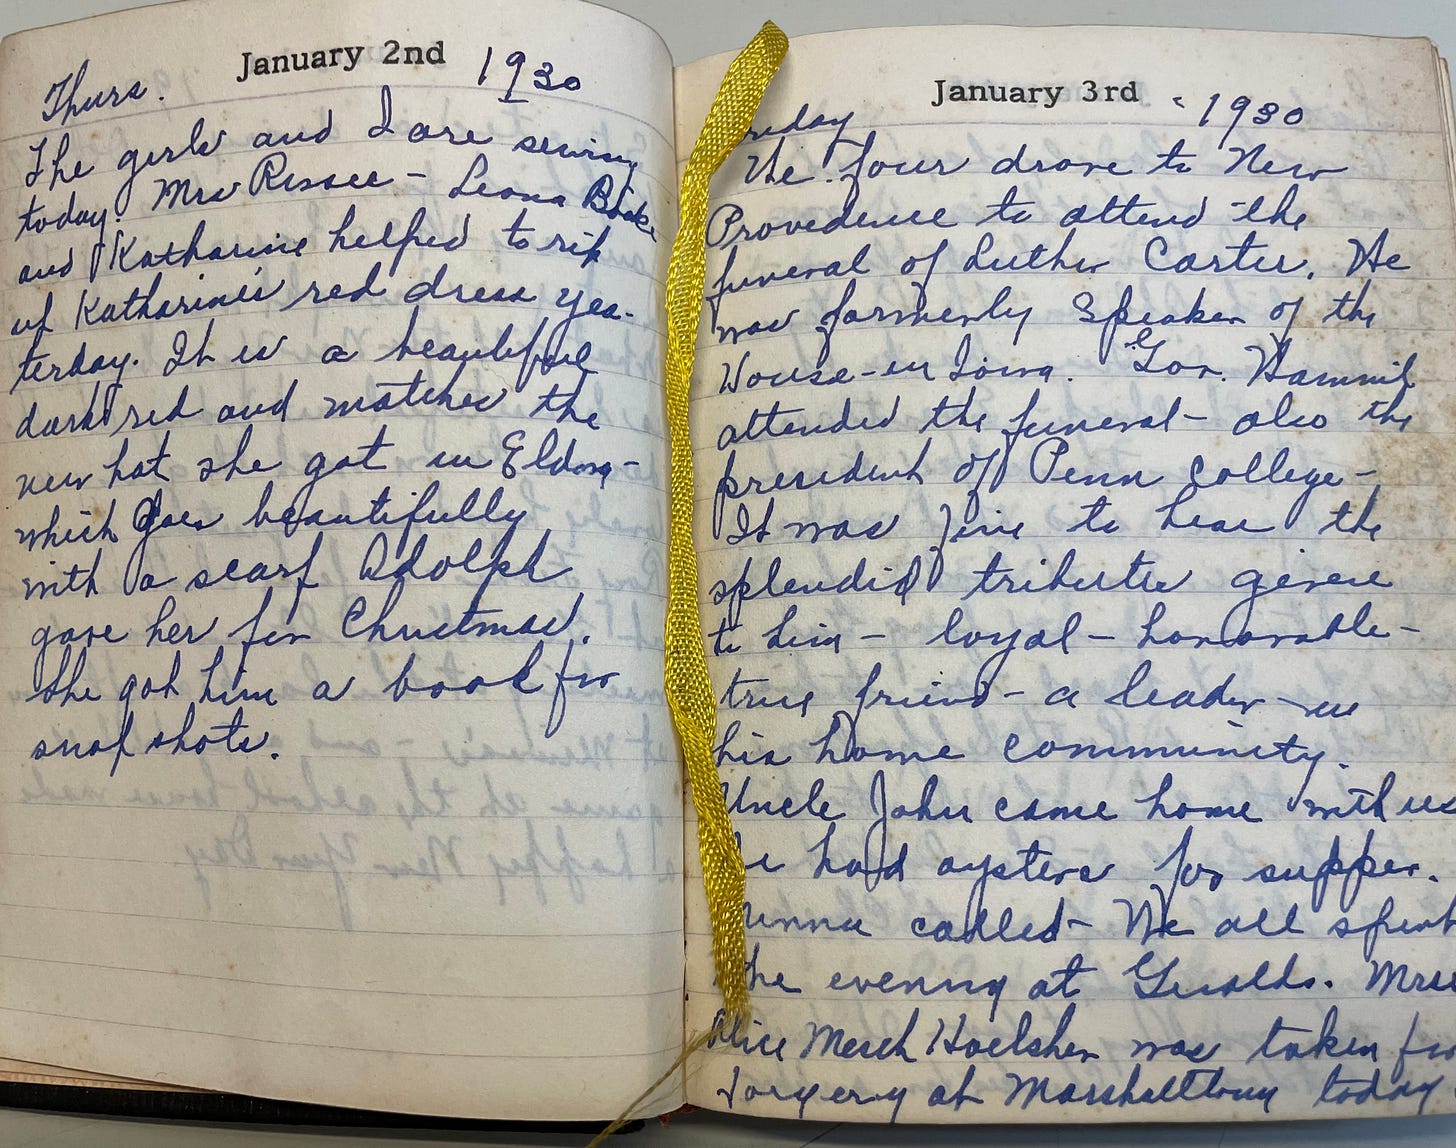 January 2nd 1930
Thurs.
The girls and I are sewing
today. Mrs Rissee - Leona Boake
and Katharine helped to rip
up Katharine's red dress yes-
terday. It is a beautiful
dark red and matches the
new hat she got in Eldora -
which goes beautifully
with a scarf Adolph
gave her for Christmas.
She got him a book for
snap shots.
January 3rd 1930
riday
We four drove to New
Providence to attend the
funeral of Luther Carter. He
was formerly Speaker of the
House - in Iowa. Gov. Hammil
attended the funeral - also the
president of Penn College -
It was fine to hear the
splendid tributes given
to him - loyal - honorable -
true friend - a leader - in
his home community.
Uncle John came home with us
e had oysters for supper.
called - We all spent
the evening at Geralds. Mrs
Alice Merch Hoelsher was taken for
forgery at Marshalltown today